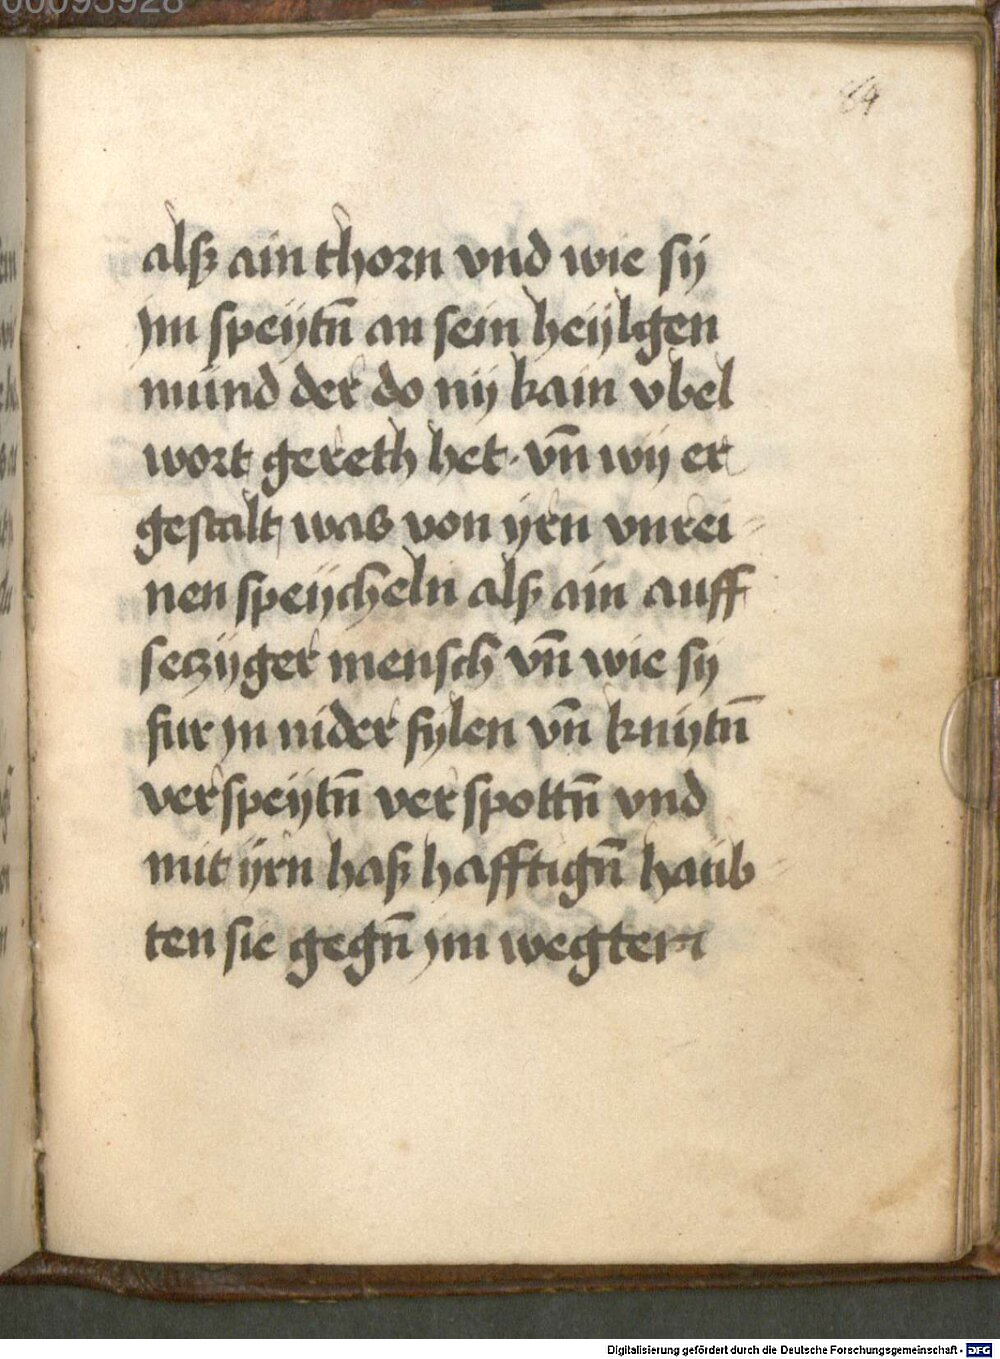 00095928
84
alß ain thorn vnd wie sÿ
ym speÿtn̄ an sein heÿlgen
mund der do nÿ kain vbel
wort gereth het · vn̄ wÿ er
gestalt was von ÿrn vnrei-
nen speÿcheln alß ain auff
seczÿger mensch vn̄ wie sÿ
fur yn nider fylen vn̄ knÿtn̄
verspeÿtn̄ verspottn̄ vnd
mit ÿrn haß hafftign̄ haub-
ten sie gegn̄ ym wegten
Digitalisierung gefördert durch die Deutsche Forschungsgemeinschaft - DFG